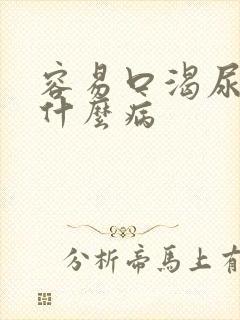 容易口渴尿
什麼病
分析帝馬上有